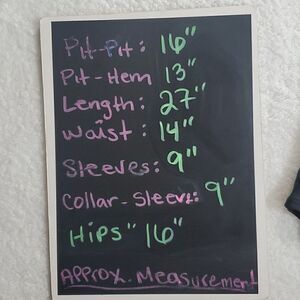 Pit-Pit: 16"
Pit-Hem 13"
Length: 27"
Waist: 14"
Sleeves: 9"
Collar-Sleeve: 9"
Hips" 16"
Approx. Measurement